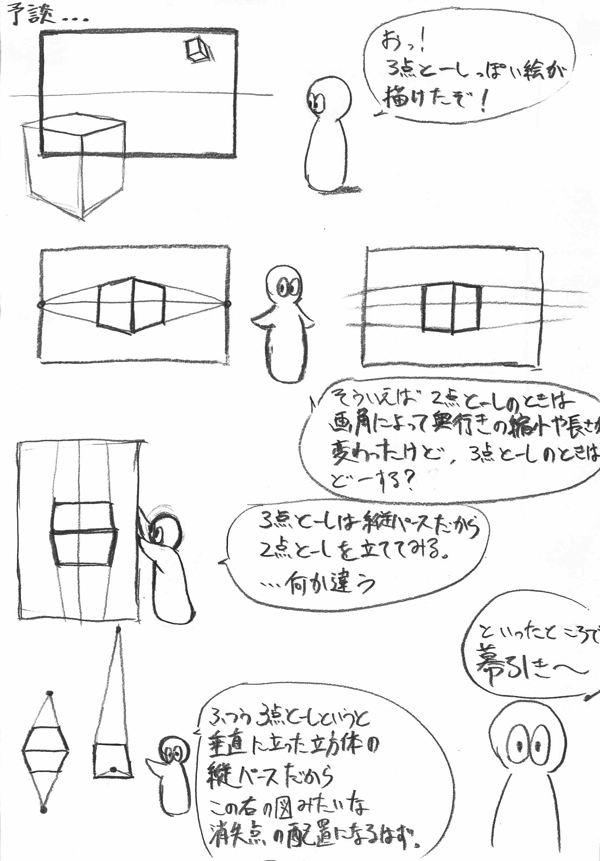 予談...
おっ!
3点とーしっぽい絵が
描けたぞ!
そういえば 2点とーしのときは
画角によって奥行きの縮小や長さが
変わったけど、3点とーしのときは
どーする?
3点とーしは縦パースだから
2点とーしを立ててみる。
...何か違う
といったところで
幕引き〜
ふつう 3点とーしというと
垂直に立った立方体の
縦パースだから
この右の図みたいな
消失点の配置になるはず。